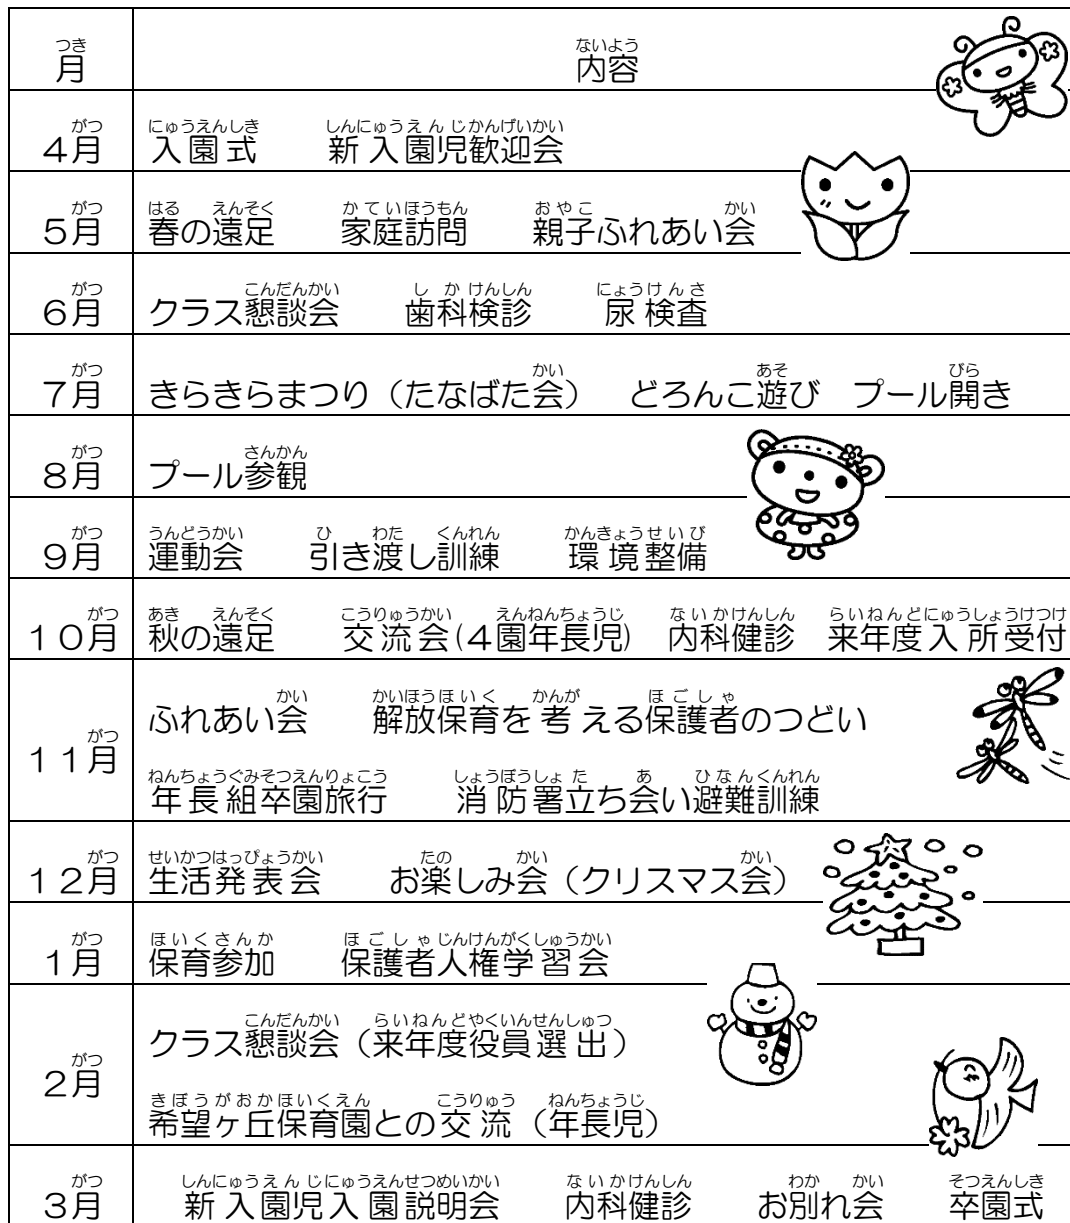 月 内容
4月 入園式 新入園児歓迎会
5月 春の遠足 家庭訪問 親子ふれあい会
6月 クラス懇談会 歯科検診 尿検査
7月 きらきらまつり（たなばた会） どろんこ遊び プール開き
8月 プール参観
9月 運動会 引き渡し訓練 環境整備
10月 秋の遠足 交流会(4園年長児) 内科健診 来年度入所受付
11月 ふれあい会 解放保育を考える保護者のつどい
年長組卒園旅行 消防署立ち会い避難訓練
12月 生活発表会 お楽しみ会（クリスマス会）
1月 保育参加 保護者人権学習会
2月 クラス懇談会（来年度役員選出）
希望ヶ丘保育園との交流（年長児）
3月 新入園児入園説明会 内科健診 お別れ会 卒園式